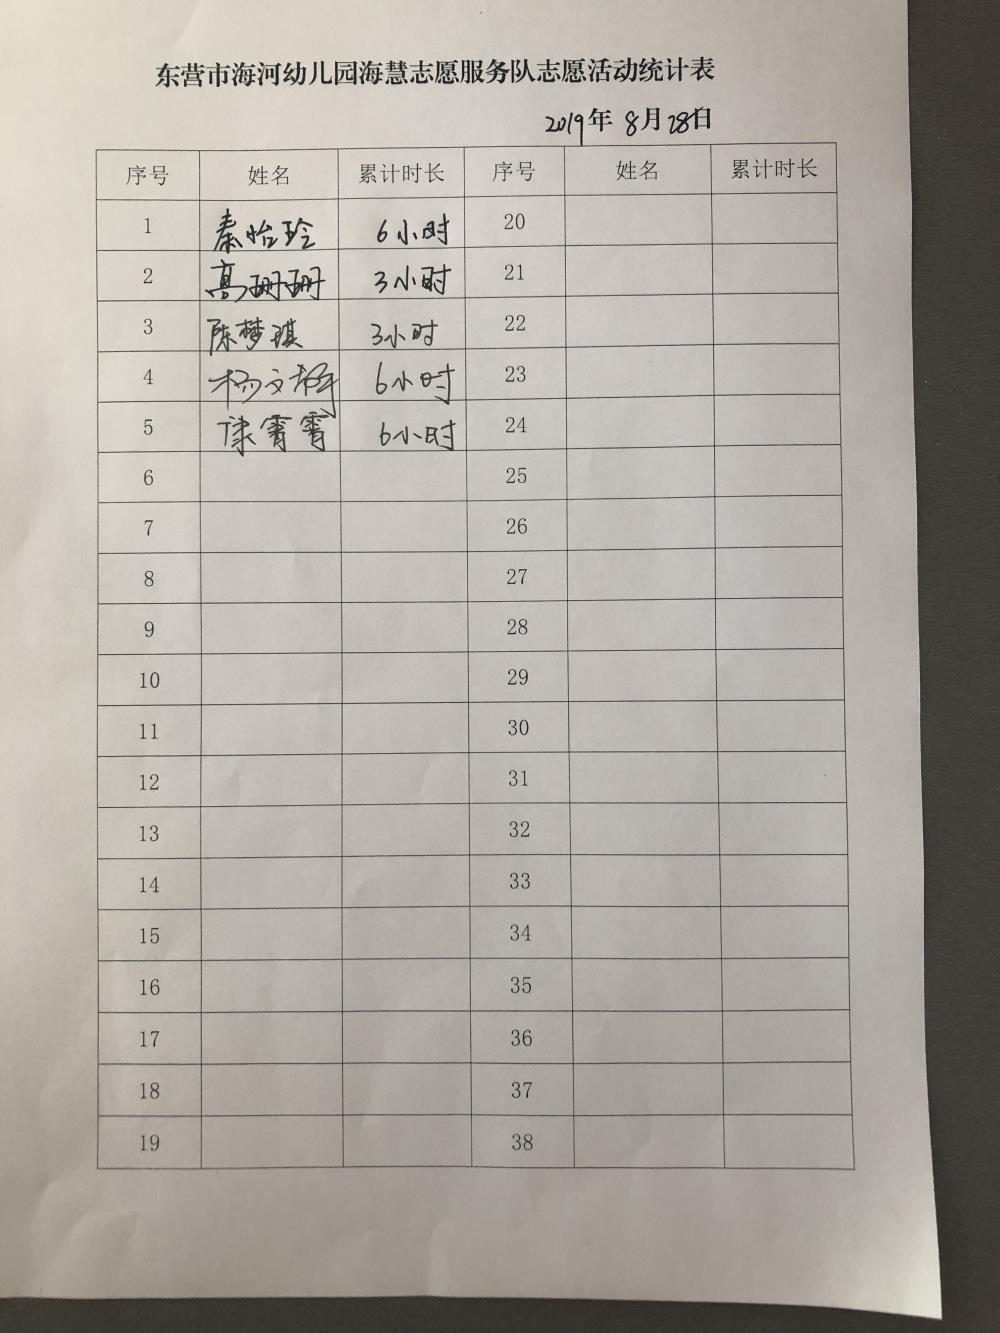 东营市海河幼儿园海慧志愿服务队志愿活动统计表
2019年 8月 28日
序号 姓名 累计时长 序号 姓名 累计时长
1 秦怡玲 6小时 20
2 高珊珊 3小时 21
3 陈梦琪 3小时 22
4 杨文 6小时 23
5 康霄霄 6小时 24
6 25
7 26
8 27
9 28
10 29
11 30
12 31
13 32
14 33
15 34
16 35
17 36
18 37
19 38